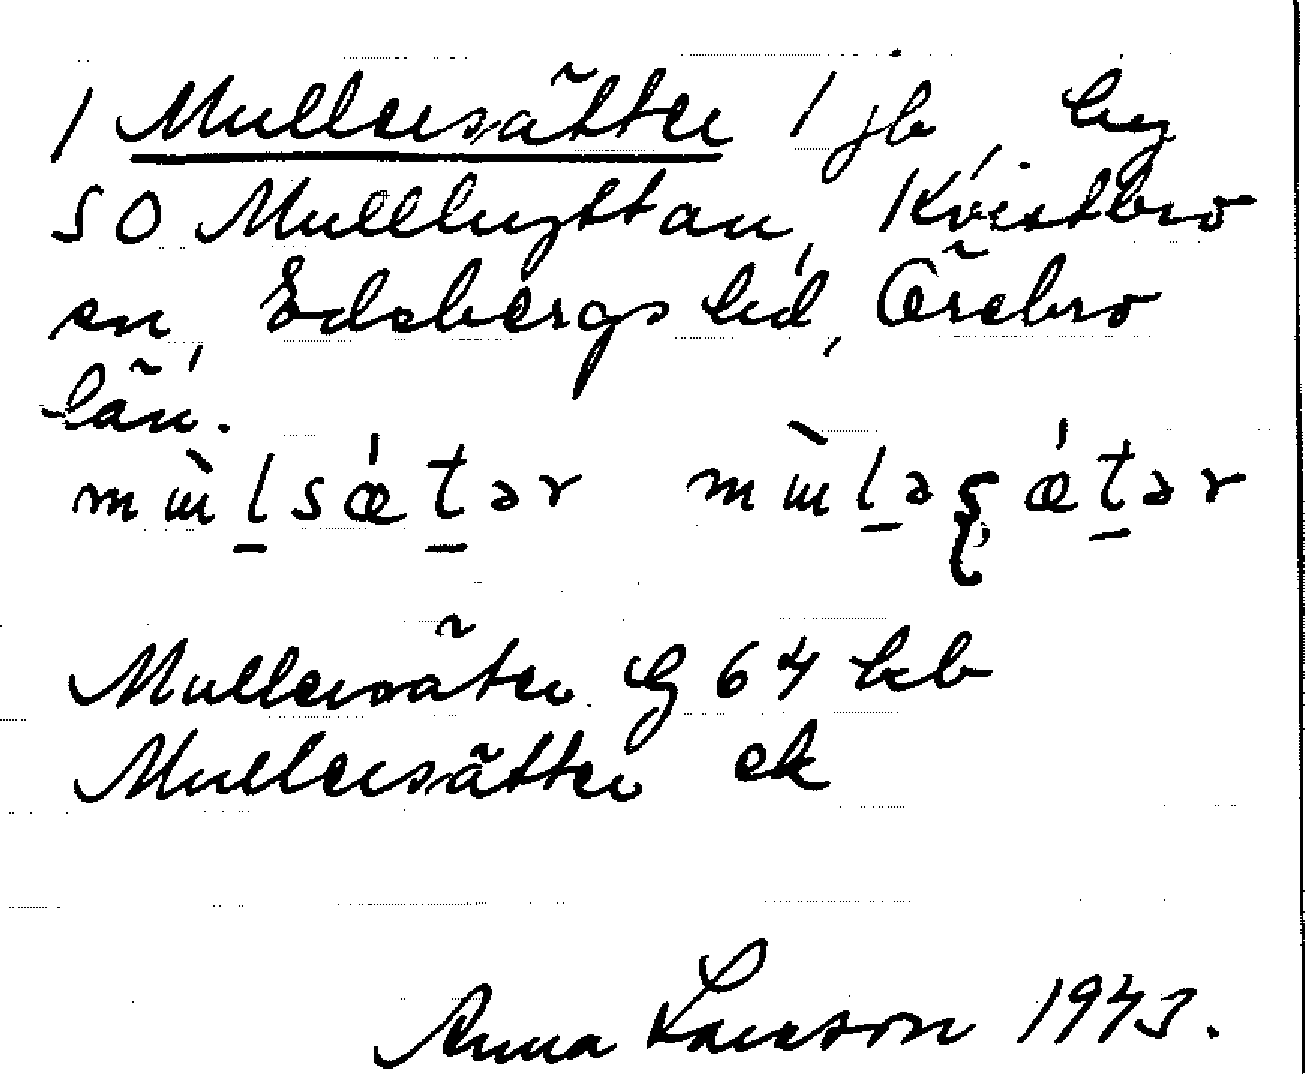 1 Mullersätter 1 jb by
SO Mullhyttan, Kvistbro
sn, Edsbergs hd, Örebro
län.
mɯ̀l̠sǽt̠ər mɯ̀l̠əʂǽt̠ər
Mullersäter G 64 kb
Mullersätter ek
Anna Larsson 1943.